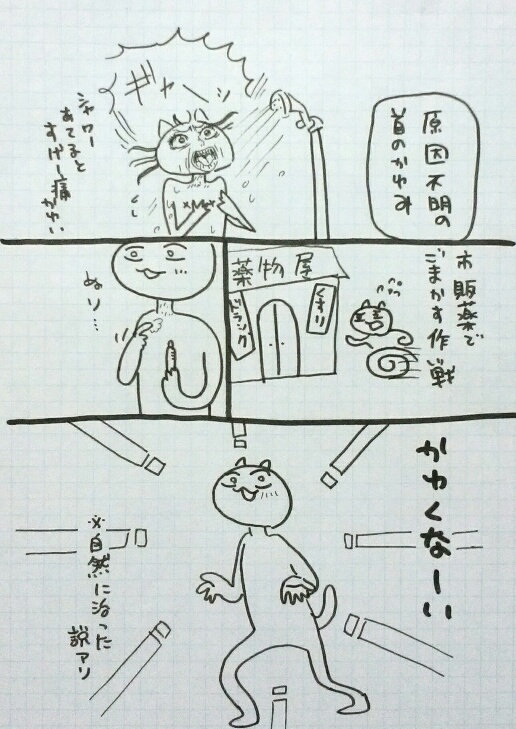 原因不明の
首のかゆみ
ギャーッ
シャワー
あてると
すげー痛
かゆい
市販薬で
ごまかす作戦
薬物屋
くすり
ドラッグ
ぬり…
かゆくなーい
※自然に治った
説アリ